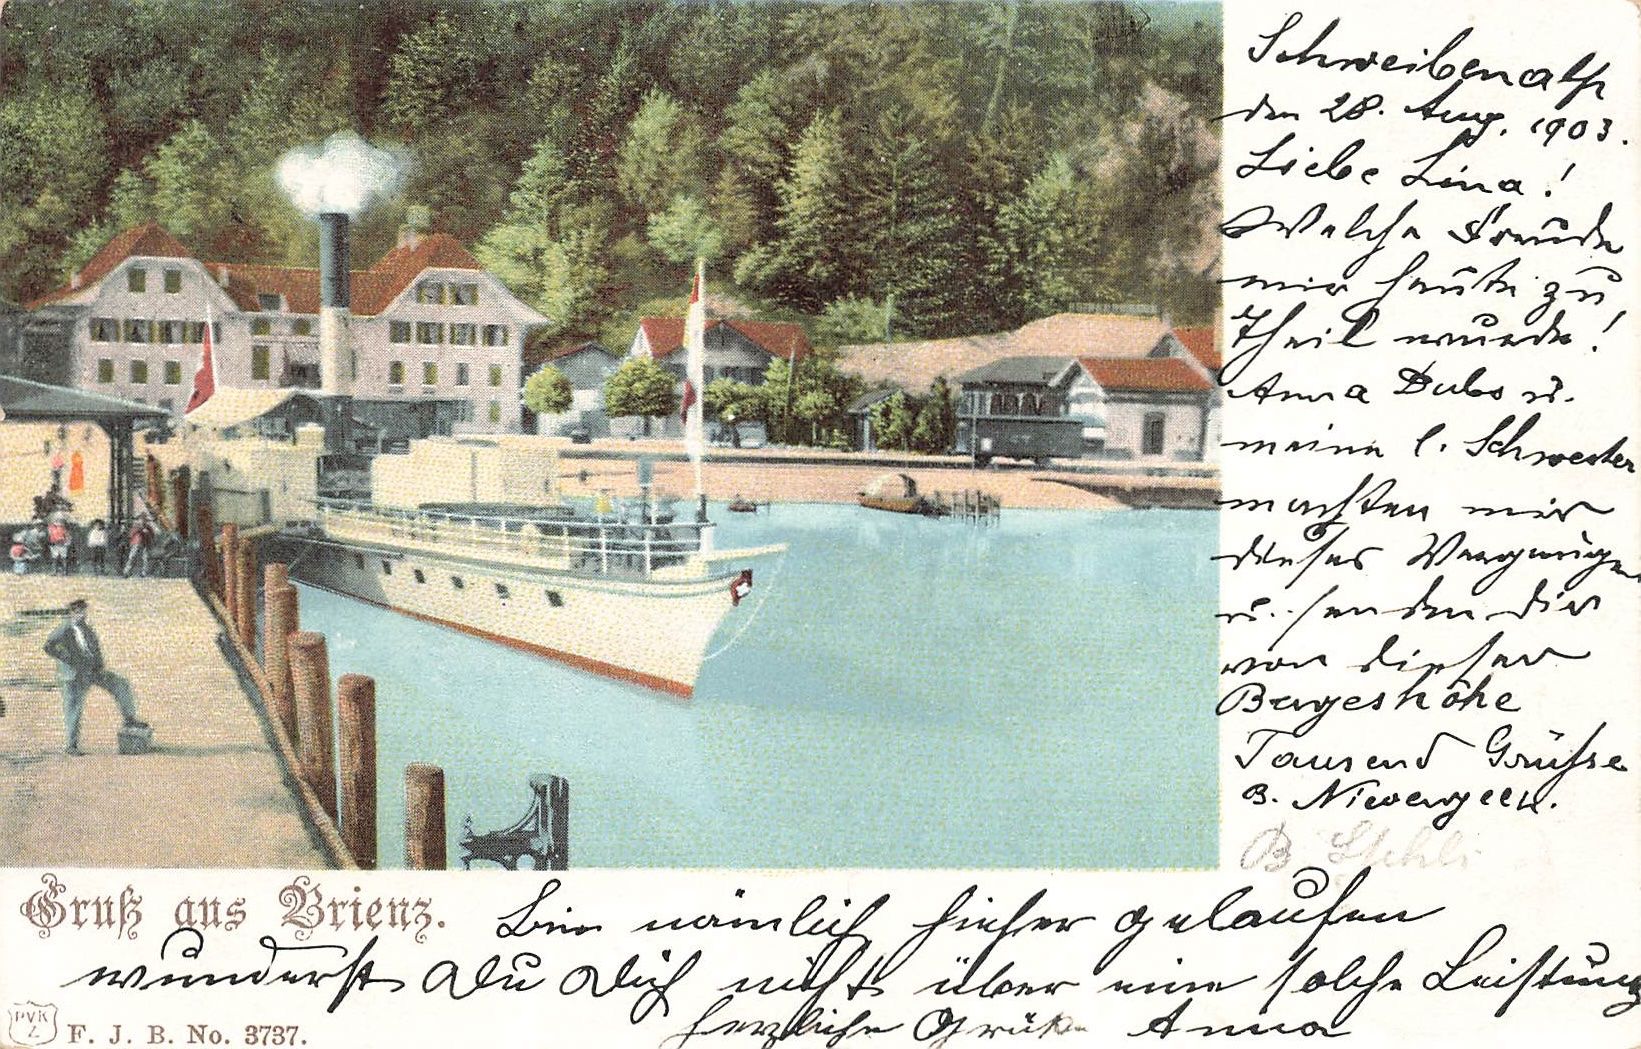 Schweibenalp
den 28. Aug. 1903.
Liebe Lina!
Welche Freude
mir heute zu
Theil wurde!
Anna Dubs u.
meine l. Schwester
machten mir
dieses Vergnügen
u. senden dir
von dieser
Bergeshöhe
Tausend Grüsse
B. Nievergelt.
B
Gruß aus Brienz.
Bin nämlich hieher gelaufen
wunderst Du Dich nicht über eine solche Leistung
herzliche Grüße Anna
PVK
Z
F. J. B. No. 3737.